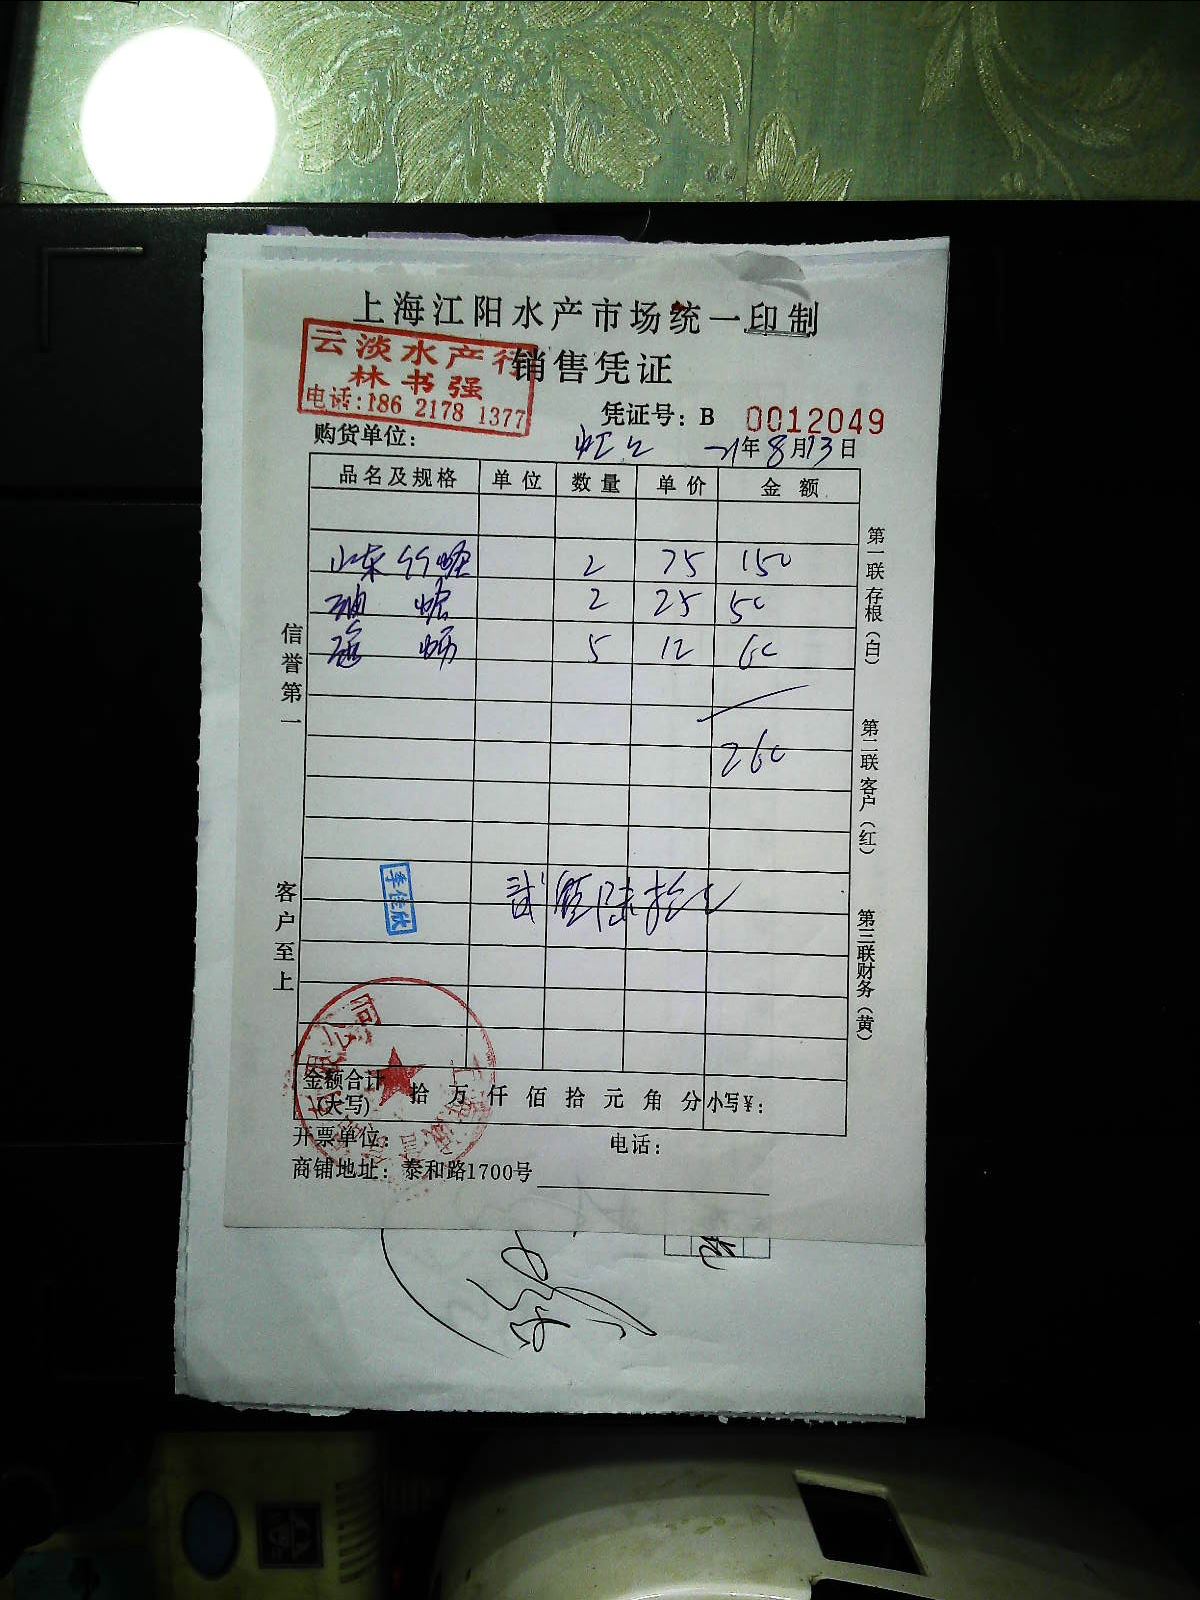 上海江阳水产市场统一印制
销售凭证
云淡水产行
林书强
电话:186 2178 1377
凭证号: B 0012049
购货单位: 虹上 21年8月13日
品名及规格 单位 数量 单价 金额
山东竹蛏 2 75 150
2 25 50
5 12 60
260
贰佰陆拾元
李佳欣
信誉第一
客户至上
第一联存根(白)
第二联客户(红)
第三联财务(黄)
金额合计(大写) 拾 万 仟 佰 拾 元 角 分 小写¥:
开票单位: 电话:
商铺地址: 泰和路1700号